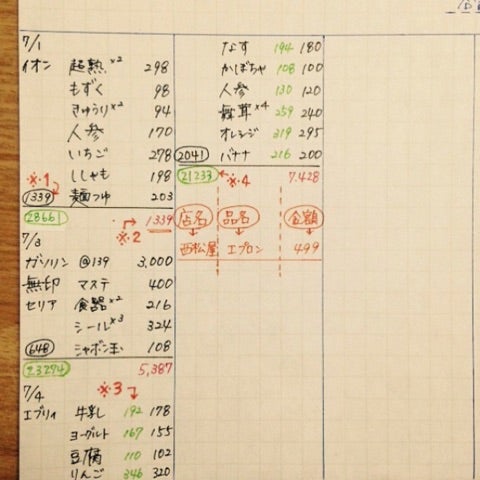 7/1
イオン 超熟×2 298
もずく 98
きゅうり×2 94
人参 170
いちご 278
ししゃも 198
※1
1339 麺つゆ 203
28661 1339
※2
7/3
ガソリン @139 3,000
無印 マステ 400
セリア 食器×2 216
シール×3 324
648 シャボン玉 108
23274 5,387
7/4 ※3
エブリィ 牛乳 192 178
ヨーグルト 167 155
豆腐 110 102
りんご 346 320
なす 194 180
かぼちゃ 108 100
人参 130 120
舞茸×4 259 240
オレンジ 319 295
2041 バナナ 216 200
21233 ※4 7.428
店名 品名 金額
西松屋 エプロン 499